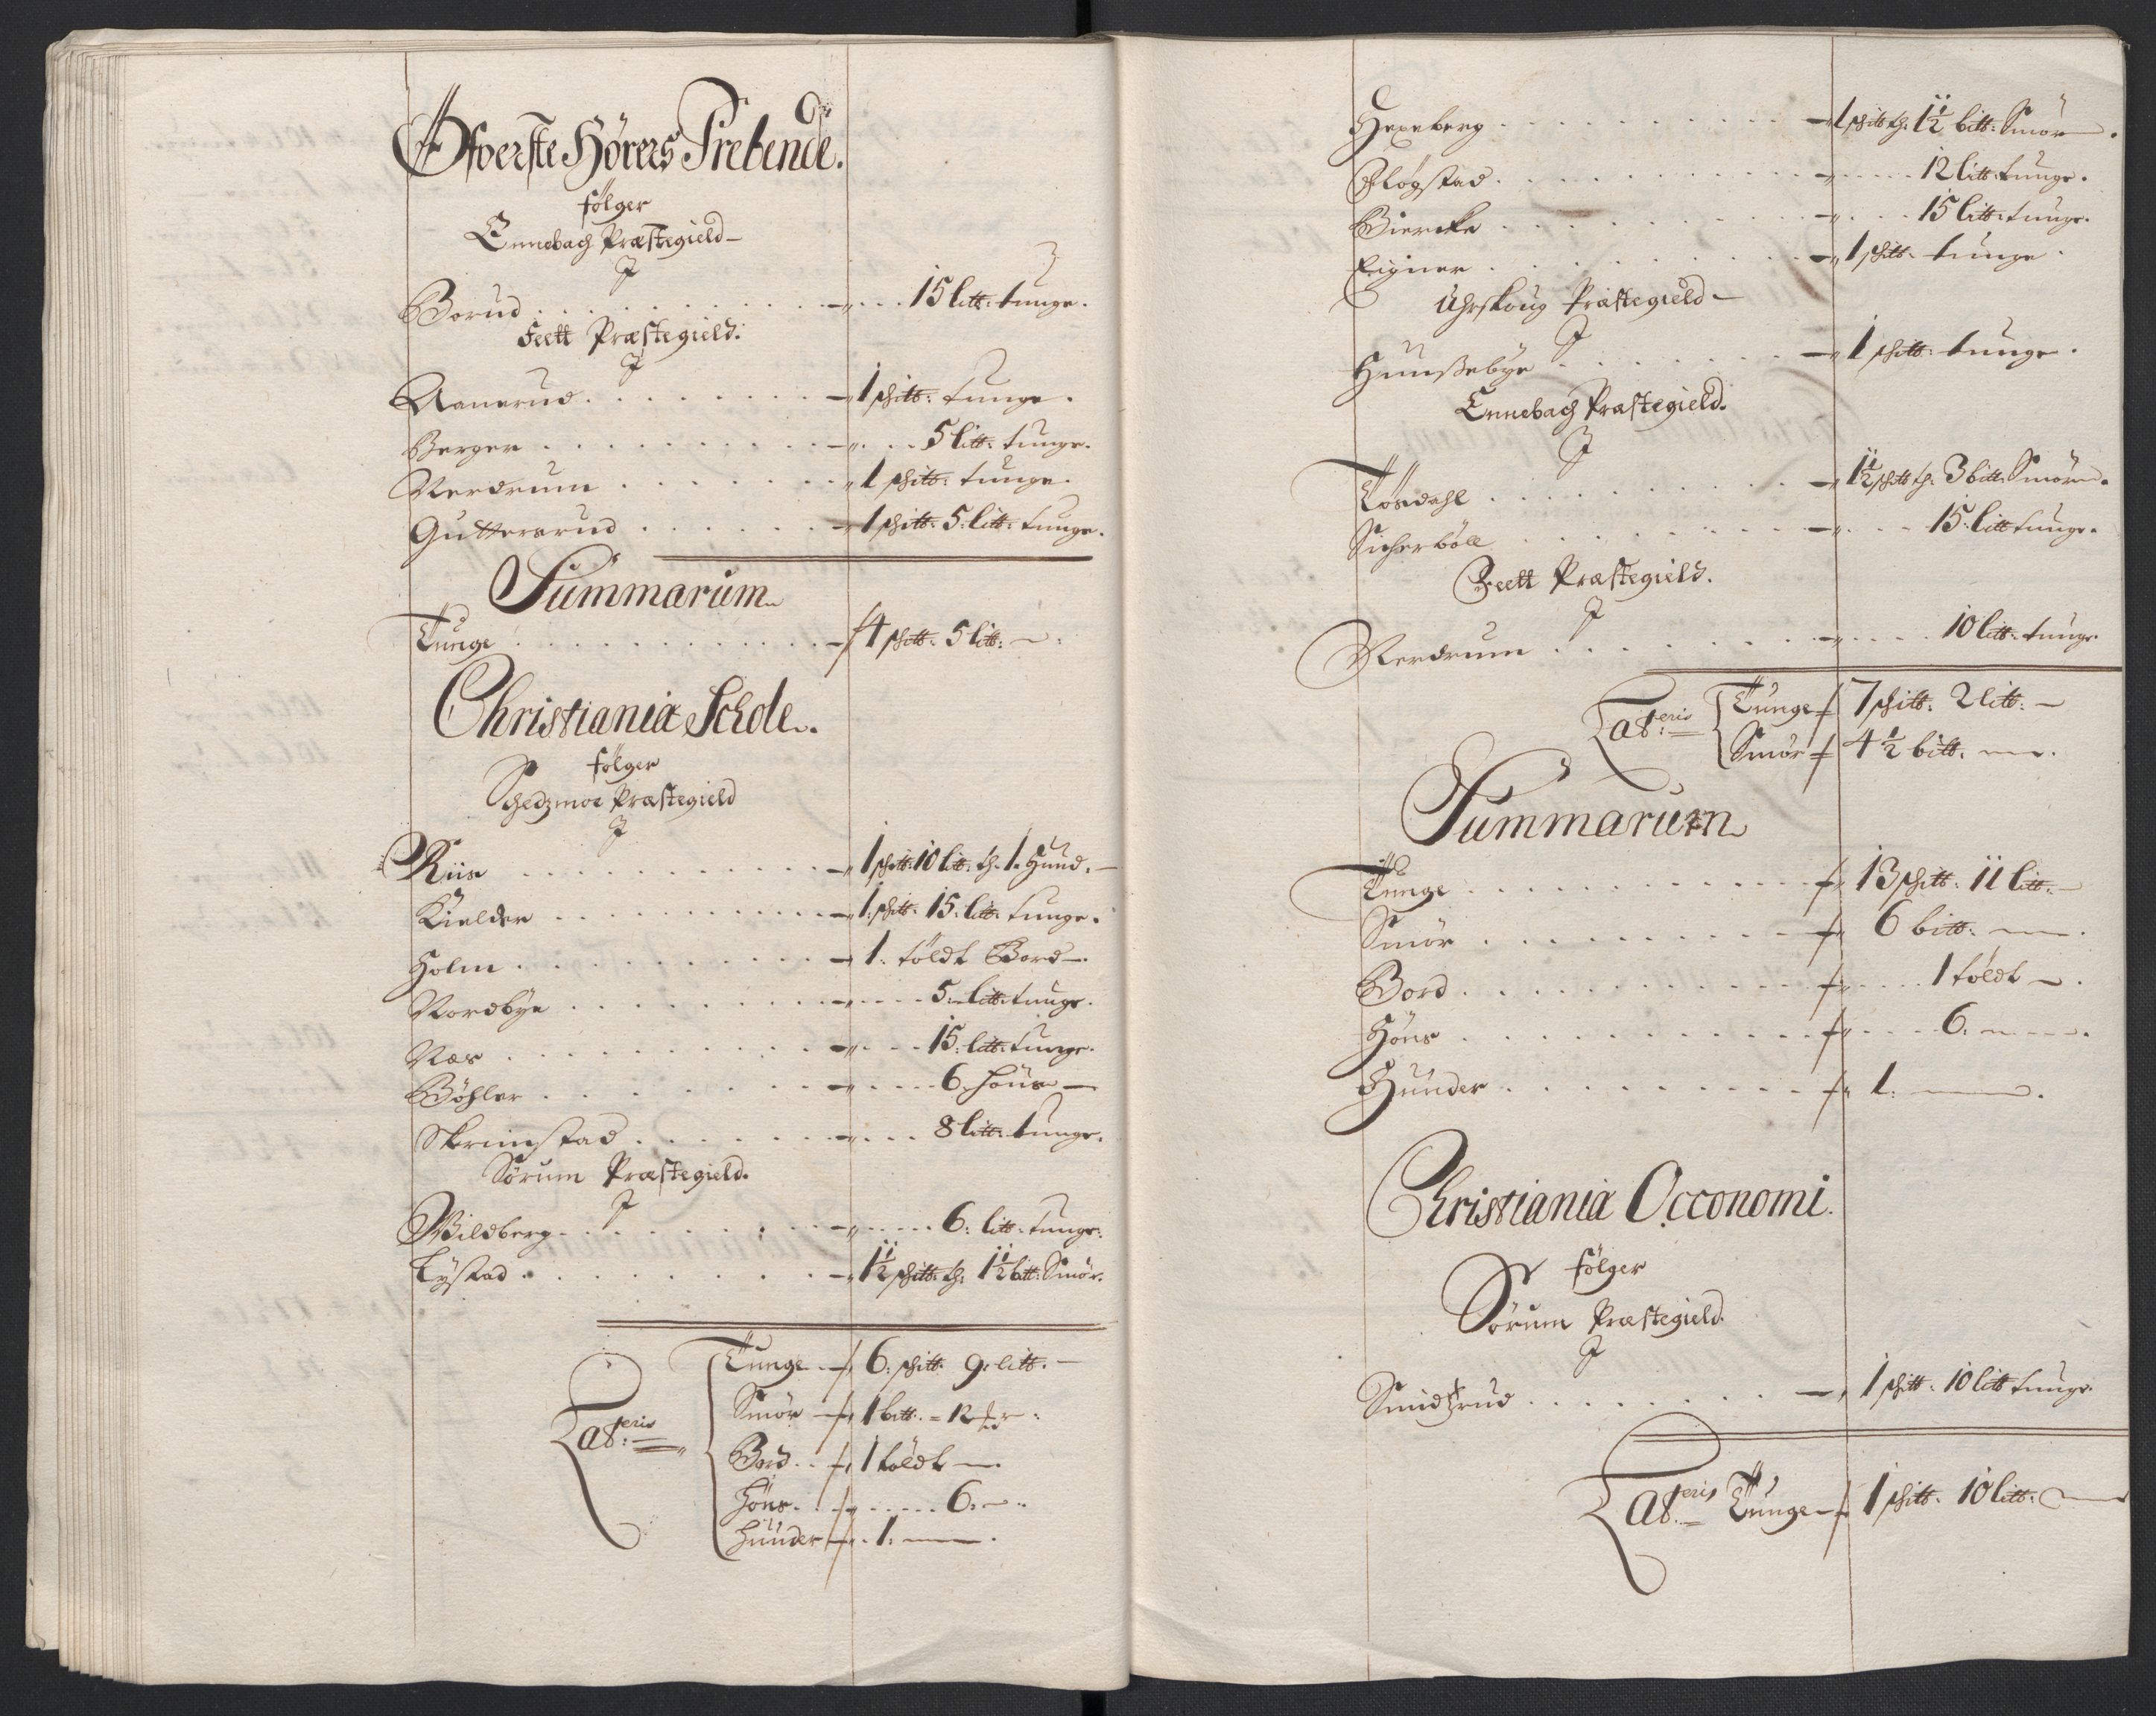 Øfverste Hørers Prebende.
følger
Ennebach Præstegield
J
Borud . . . . . . . . 15 litt: tunge.
Feett Præstegield.
J
Aanerud . . . . . . . 1 schitt: tunge.
Berger . . . . . . . . 5 litt: tunge.
Nerdrum . . . . . . . 1 schitt: tunge.
Guttersrud . . . . . . 1 schitt: 5: litt: tunge.
Summarum
Tunge . . . . . . . . 4 schitt: 5 litt:
Christiania Schole.
følger
Schedzmoe Præstegield
J
Riis . . . . . . . . 1 schitt: 10 litt: th. 1. Hund.
Kielder . . . . . . . 1: schitt: 15: litt: tunge.
Holm . . . . . . . . 1: töldt Bord
Nordbye . . . . . . . 5: litt: tunge.
Næs . . . . . . . . 15: litt: tunge.
Böhler . . . . . . . 6. Höns
Skrimstad . . . . . . 8 litt: tunge.
Sørum Præstegield.
J
Wildberg . . . . . . . 6: litt: tunge:
Lystad . . . . . . . . 1½ schitt: th: 1½ bitt: Smör.
Lateris
Tunge 6: schitt: 9: litt:
Smör 1 bitt: 12
Bord 1 töldt
Höns 6:
Hunder 1:
Hexeberg . . . . . . . 1 schitt th: 1½ bitt: Smör
Fløgstad . . . . . . . 12 litt: tunge.
Biercke . . . . . . . 15 litt: tunge.
Eigner . . . . . . . 1 schitt: tunge.
Uhrskoug Præstegield
J
Hunßebye . . . . . . 1 schitt: tunge.
Ennebach Præstegield.
J
Tosdahl . . . . . . . 1½ schitt th: 3 bitt: Smör
Sicherböll . . . . . . 15: litt tunge.
Feett Præstegield.
J
Nerdrum . . . . . . . 10 litt: tunge
Lateris
Tunge 7 schitt: 2 litt:
Smör 4½ bitt:
Summarum
Tunge . . . . . . . 13 schitt: 11 litt:
Smör . . . . . . . 6 bitt:
Bord . . . . . . . 1 töldt
Höns . . . . . . . 6:
Hunder . . . . . . . 1:
Christiania Oeconomi.
følger
Sørum Præstegield.
J
Smidtzrud . . . . . . 1 schitt: 10 litt tunge.
Lateris Tunge 1 schitt: 10 litt: